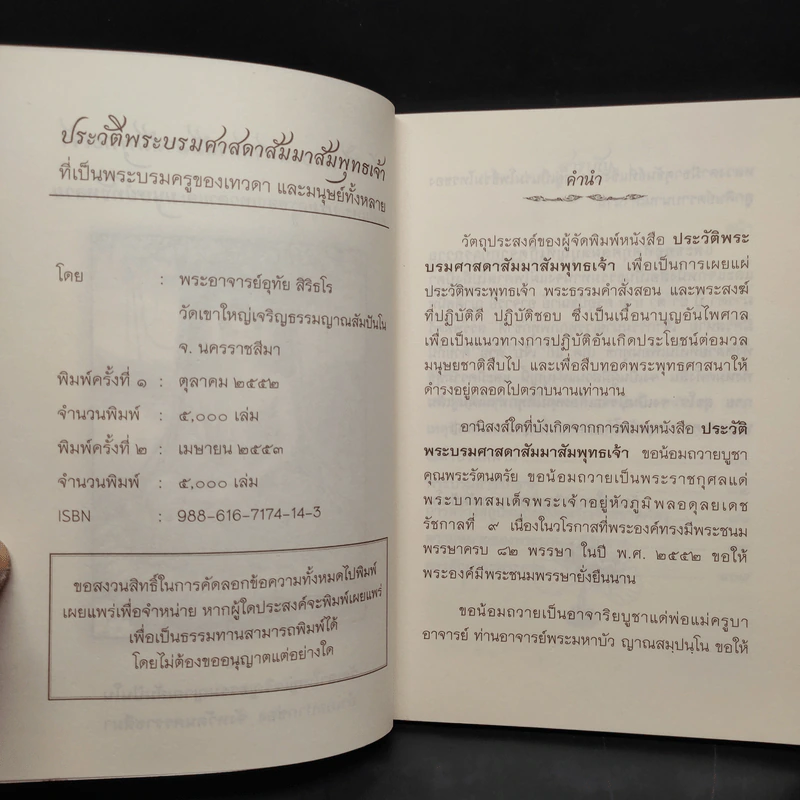 ประวัติพระบรมศาสดาสัมมาสัมพุทธเจ้า
ที่เป็นพระบรมครูของเทวดา และมนุษย์ทั้งหลาย
โดย : พระอาจารย์อุทัย สิริธโร
วัดเขาใหญ่เจริญธรรมญาณสัมปันโน
จ. นครราชสีมา
พิมพ์ครั้งที่ ๑ : ตุลาคม ๒๕๕๒
จำนวนพิมพ์ : ๕,๐๐๐ เล่ม
พิมพ์ครั้งที่ ๒ : เมษายน ๒๕๕๓
จำนวนพิมพ์ : ๕,๐๐๐ เล่ม
ISBN : 988-616-7174-14-3
ขอสงวนสิทธิ์ในการคัดลอกข้อความทั้งหมดไปพิมพ์
เผยแพร่เพื่อจำหน่าย หากผู้ใดประสงค์จะพิมพ์เผยแพร่
เพื่อเป็นธรรมทานสามารถพิมพ์ได้
โดยไม่ต้องขออนุญาตแต่อย่างใด
คำนำ
วัตถุประสงค์ของผู้จัดพิมพ์หนังสือ ประวัติพระ
บรมศาสดาสัมมาสัมพุทธเจ้า เพื่อเป็นการเผยแผ่
ประวัติพระพุทธเจ้า พระธรรมคำสั่งสอน และพระสงฆ์
ที่ปฏิบัติดี ปฏิบัติชอบ ซึ่งเป็นเนื้อนาบุญอันไพศาล
เพื่อเป็นแนวทางการปฏิบัติอันเกิดประโยชน์ต่อมวล
มนุษยชาติสืบไป และเพื่อสืบทอดพระพุทธศาสนาให้
ดำรงอยู่ตลอดไปตราบนานเท่านาน
อานิสงส์ใดที่บังเกิดจากการพิมพ์หนังสือ ประวัติ
พระบรมศาสดาสัมมาสัมพุทธเจ้า ขอน้อมถวายบูชา
คุณพระรัตนตรัย ขอน้อมถวายเป็นพระราชกุศลแด่
พระบาทสมเด็จพระเจ้าอยู่หัวภูมิพลอดุลยเดช
รัชกาลที่ ๙ เนื่องในวโรกาสที่พระองค์ทรงมีพระชนม
พรรษาครบ ๘๒ พรรษา ในปี พ.ศ. ๒๕๕๒ ขอให้
พระองค์มีพระชนมพรรษายั่งยืนนาน
ขอน้อมถวายเป็นอาจาริยบูชาแด่พ่อแม่ครูบา
อาจารย์ ท่านอาจารย์พระมหาบัว ญาณสมฺปนฺโน ขอให้